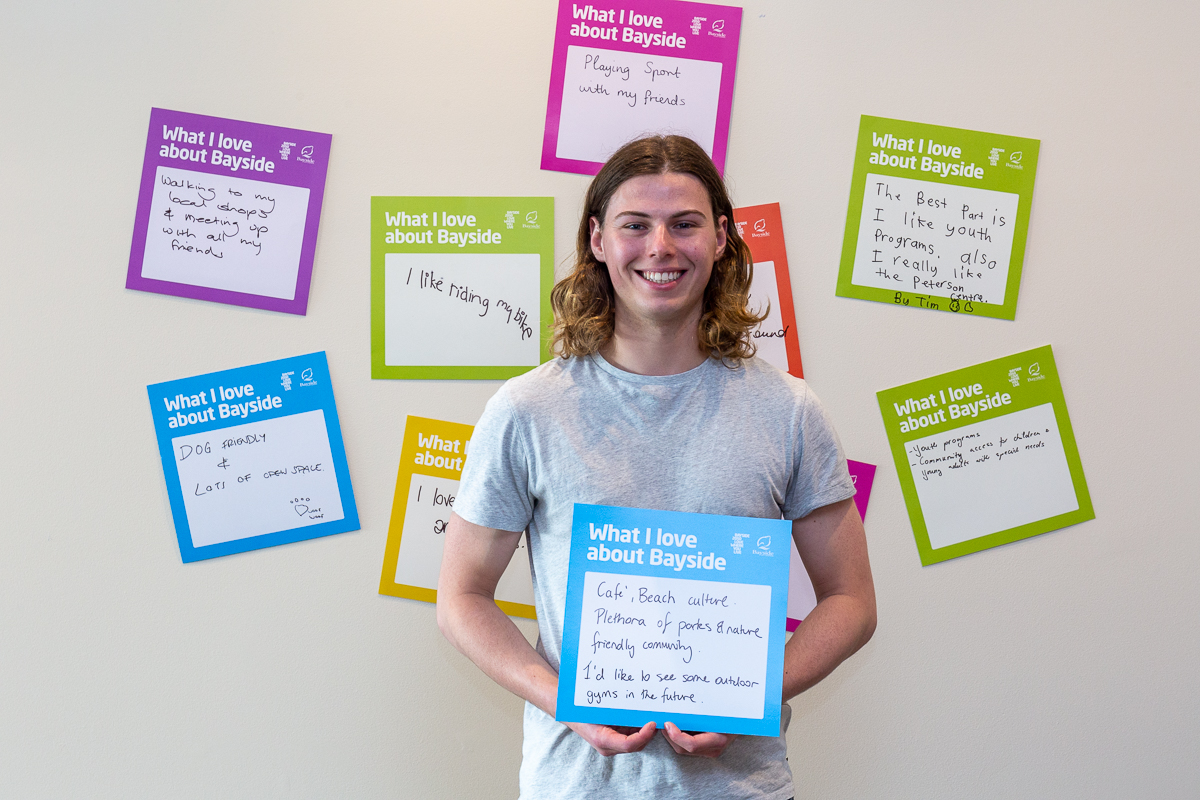 What I love
about Bayside
Bayside
Playing Sport
with my friends
What I love
about Bayside
Bayside
Walking to my
local shops
& meeting up
with all my
friends
What I love
about Bayside
Bayside
I like riding my bike
Bayside
ound
What I love
about Bayside
Bayside
The Best Part is
I like youth
Programs. also
I really like
the Peterson
Centre.
By Tim
What I love
about Bayside
Bayside
DOG FRIENDLY
&
LOTS OF OPEN SPACE.
WOOF
WOOF
What I
about
I love
What I love
about Bayside
Bayside
- Youth programs
- Community access for children &
young adults with special needs
What I love
about Bayside
Bayside
Cafe', Beach culture.
Plethora of parks & nature
friendly community.
I'd like to see some outdoor
gyms in the future.